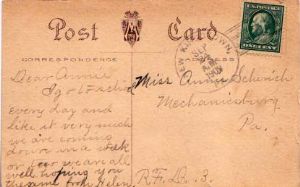 Post Card
CORRESPONDENCE
Dear Annie
I go to Factory
every day and
like it very much
we are coming
down in a week
or two we are all
well hoping you
the same from Helen
Miss Annie
Mechanicsburg
Pa.
R.F.D. 3.
NEW
ONE CENT